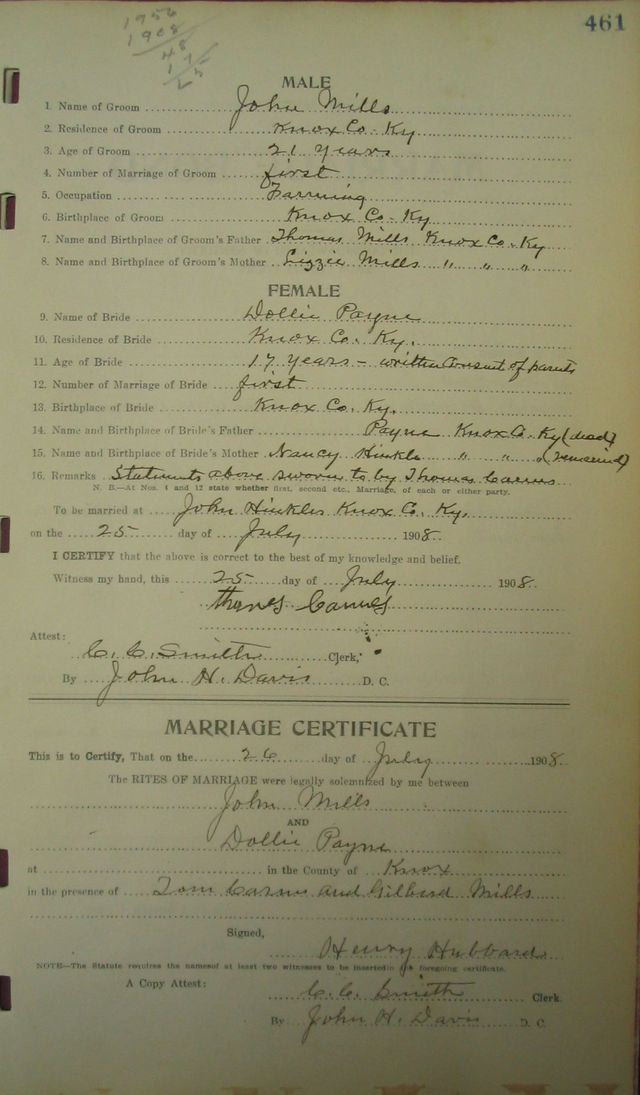 1956
1908
48
17
461
MALE
1. Name of Groom John Mills
2. Residence of Groom Knox Co. Ky
3. Age of Groom 21 years
4. Number of Marriage of Groom first
5. Occupation Farming
6. Birthplace of Groom Knox Co. Ky
7. Name and Birthplace of Groom's Father Thomas Mills Knox Co. Ky
8. Name and Birthplace of Groom's Mother Lizzie Mills " " "
FEMALE
9. Name of Bride Dollie Payne
10. Residence of Bride Knox Co. Ky.
11. Age of Bride 17 years - written Consent of parents
12. Number of Marriage of Bride first
13. Birthplace of Bride Knox Co. Ky.
14. Name and Birthplace of Bride's Father Payne Knox Co. Ky (dead)
15. Name and Birthplace of Bride's Mother Nancy Hinkle " " "
16. Remarks Statements above sworn to by Thomas Carnes
N. B.—At Nos. 4 and 12 state whether first, second etc., Marriage, of each or either party.
To be married at John Hinkles Knox Co. Ky.
on the 25 day of July 1908
I CERTIFY that the above is correct to the best of my knowledge and belief.
Witness my hand, this 25 day of July 1908
Carnes
Attest:
C. C. Smith Clerk,
By John H. Davis D. C.
MARRIAGE CERTIFICATE
This is to Certify, That on the 26 day of July 1908
The RITES OF MARRIAGE were legally solemnized by me between
John Mills
AND
Dollie Payne
at in the County of Knox
in the presence of Tom Carnes and Gilbard Mills
Signed,
Henry Hubbard
NOTE—The Statute requires the namesof at least two witnesses to be insertedin foregoing certificate.
A Copy Attest: C. C. Smith Clerk.
By John H. Davis D. C.